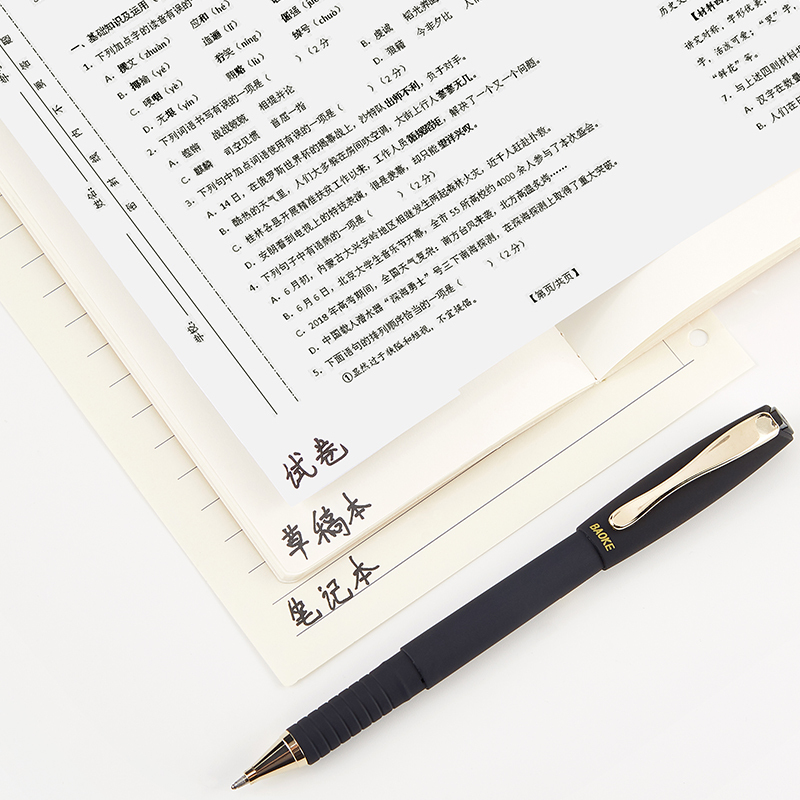 一、基础知识及运用
1. 下列加点字的读音有误的一项是
A. 撰文（zhuàn） 应和（hé）
B. 揶揄（yé） 追溯（
C. 哽咽（yè） 拧笑（níng）
D. 无垠（yín） 阴骘（liù）
）（2分
2. 下列词语书写有误的一项是（ ）（2分）
A. 铿锵 战战兢兢 相提并论
B. 虔诚
C. 麒麟 司空见惯 首屈一指
D. 溯籍 今非夕比
3. 下列句中加点词语使用有误的一项是（ ）（2分）
A. 14 日，在俄罗斯世界杯的揭幕战上，沙特队出师不利，负于对手。
B. 酷热的天气里，人们大多躲在房间吹空调，大街上行人寥寥无几。
C. 桂林各县开展精准扶贫工作以来，工作人员循规蹈矩，解决了一个又一个问题。
D. 安朗看到电视上的特技表演，很是羡慕，却只能望洋兴叹。
4. 下列句子中有语病的一项是（ ）（2分）
A. 6 月初，内蒙古大兴安岭地区相继发生两起森林火灾，近千人赶赴扑救。
B. 6 月 6 日，北京大学生音乐节开幕，全市 55 所高校约 4000 余人参与了本次盛会。
C. 2018 年高考期间，全国天气复杂，南方台风来袭，北方高温炙烤……
D. 中国载人潜水器“深海勇士”号三下南海探测，在深海探测上取得了重大突破。
5. 下面语句的排列顺序恰当的一项是（ ）（2分）
①显然过于狭隘和短视，不宜提倡。
【第页/共页】
历史文
讲文对称，字形优美，
字，活泼可爱；“哭”字，
“鲜花”等。
7. 与上述四则材料
A. 汉字在数量
B. 人们在
学校：
试卷
草稿本
笔记本
BAOKE